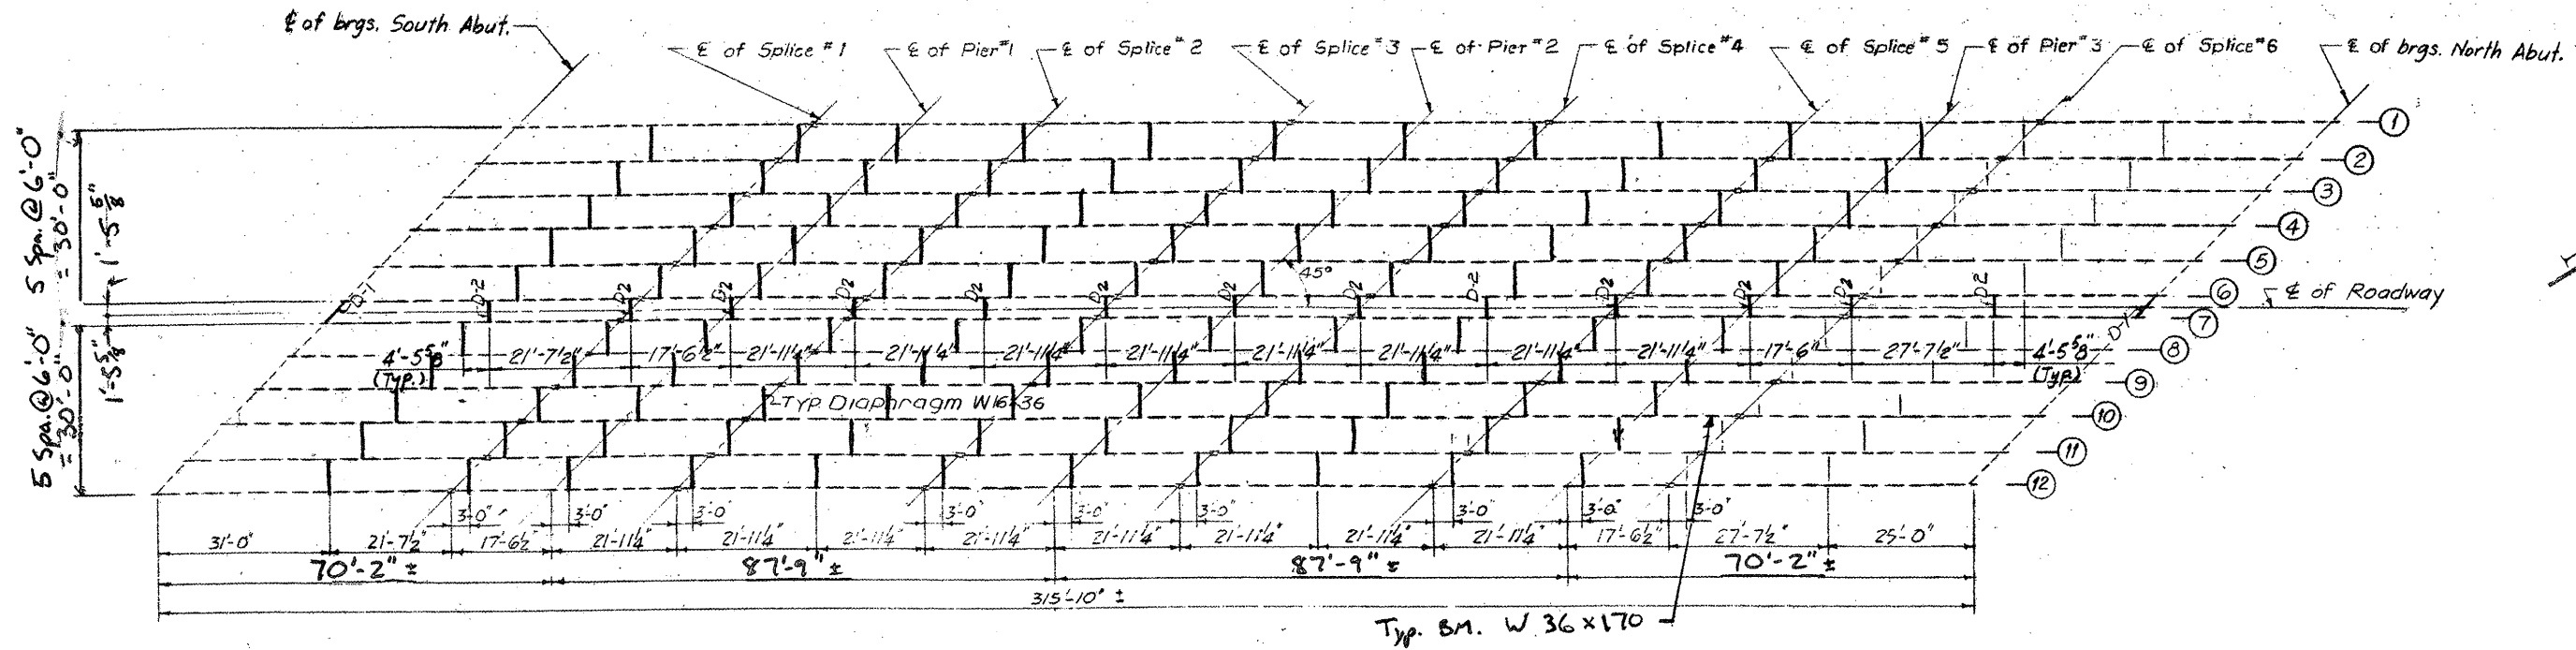 ℄ of brgs. South Abut.
℄ of Splice #1
℄ of Pier #1
℄ of Splice #2
℄ of Splice #3
℄ of Pier #2
℄ of Splice #4
℄ of Splice #5
℄ of Pier #3
℄ of Splice #6
℄ of brgs. North Abut.
1
2
3
4
5
6
7
8
9
10
11
12
℄ of Roadway
5 Spa. @ 6'-0"
= 30'-0"
1'-5 5/8"
5 Spa. @ 6'-0"
= 30'-0"
1'-5 5/8"
45°
D-1
D-2
D2
D2
D2
D2
D2
D2
D2
D-2
D2
D2
D2
D2
D-1
4'-5 5/8"
(Typ.)
21'-7 1/2"
17'-6 1/2"
21'-11 1/4"
21'-11 1/4"
21'-11 1/4"
21'-11 1/4"
21'-11 1/4"
21'-11 1/4"
21'-11 1/4"
21'-11 1/4"
17'-6"
27'-7 1/2"
4'-5 5/8"
(Typ.)
Typ. Diaphragm W16x36
3'-0"
3'-0"
3'-0"
3'-0"
3'-0"
3'-0"
3'-0"
3'-0"
3'-0"
31'-0"
21'-7 1/2"
17'-6 1/2"
21'-11 1/4"
21'-11 1/4"
21'-11 1/4"
21'-11 1/4"
21'-11 1/4"
21'-11 1/4"
21'-11 1/4"
21'-11 1/4"
17'-6 1/2"
27'-7 1/2"
25'-0"
70'-2" ±
87'-9" ±
87'-9" ±
70'-2" ±
315'-10" ±
Typ. BM. W 36 x 170